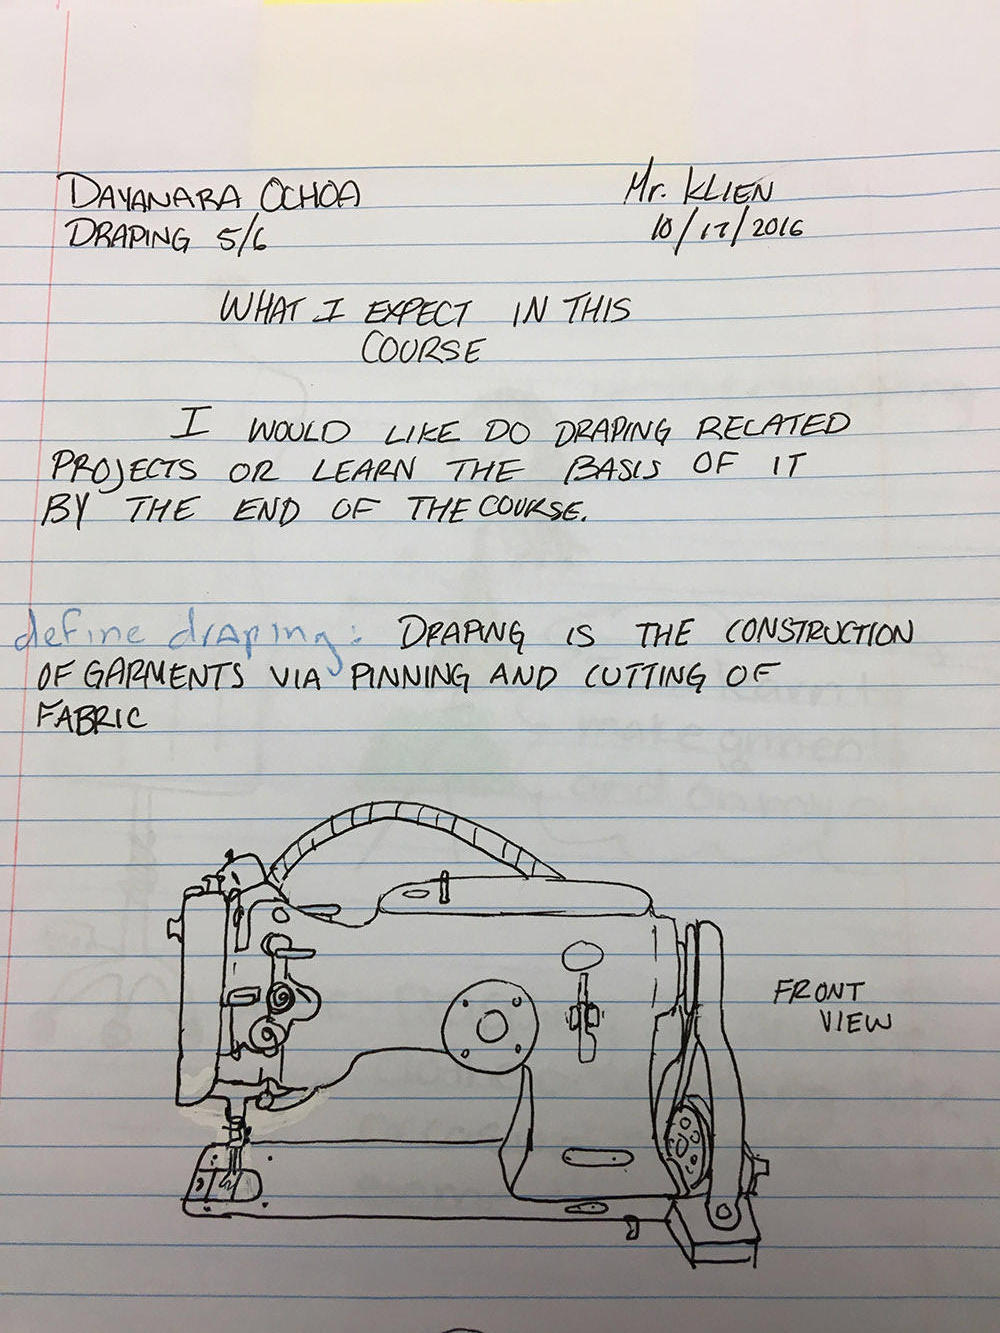 DAYANARA OCHOA
Mr. KLIEN
DRAPING 5/6
10/17/2016
WHAT I EXPECT IN THIS
COURSE
I WOULD LIKE DO DRAPING RELATED
PROJECTS OR LEARN THE BASIS OF IT
BY THE END OF THE COURSE.
define draping: DRAPING IS THE CONSTRUCTION
OF GARMENTS VIA PINNING AND CUTTING OF
FABRIC
FRONT
VIEW